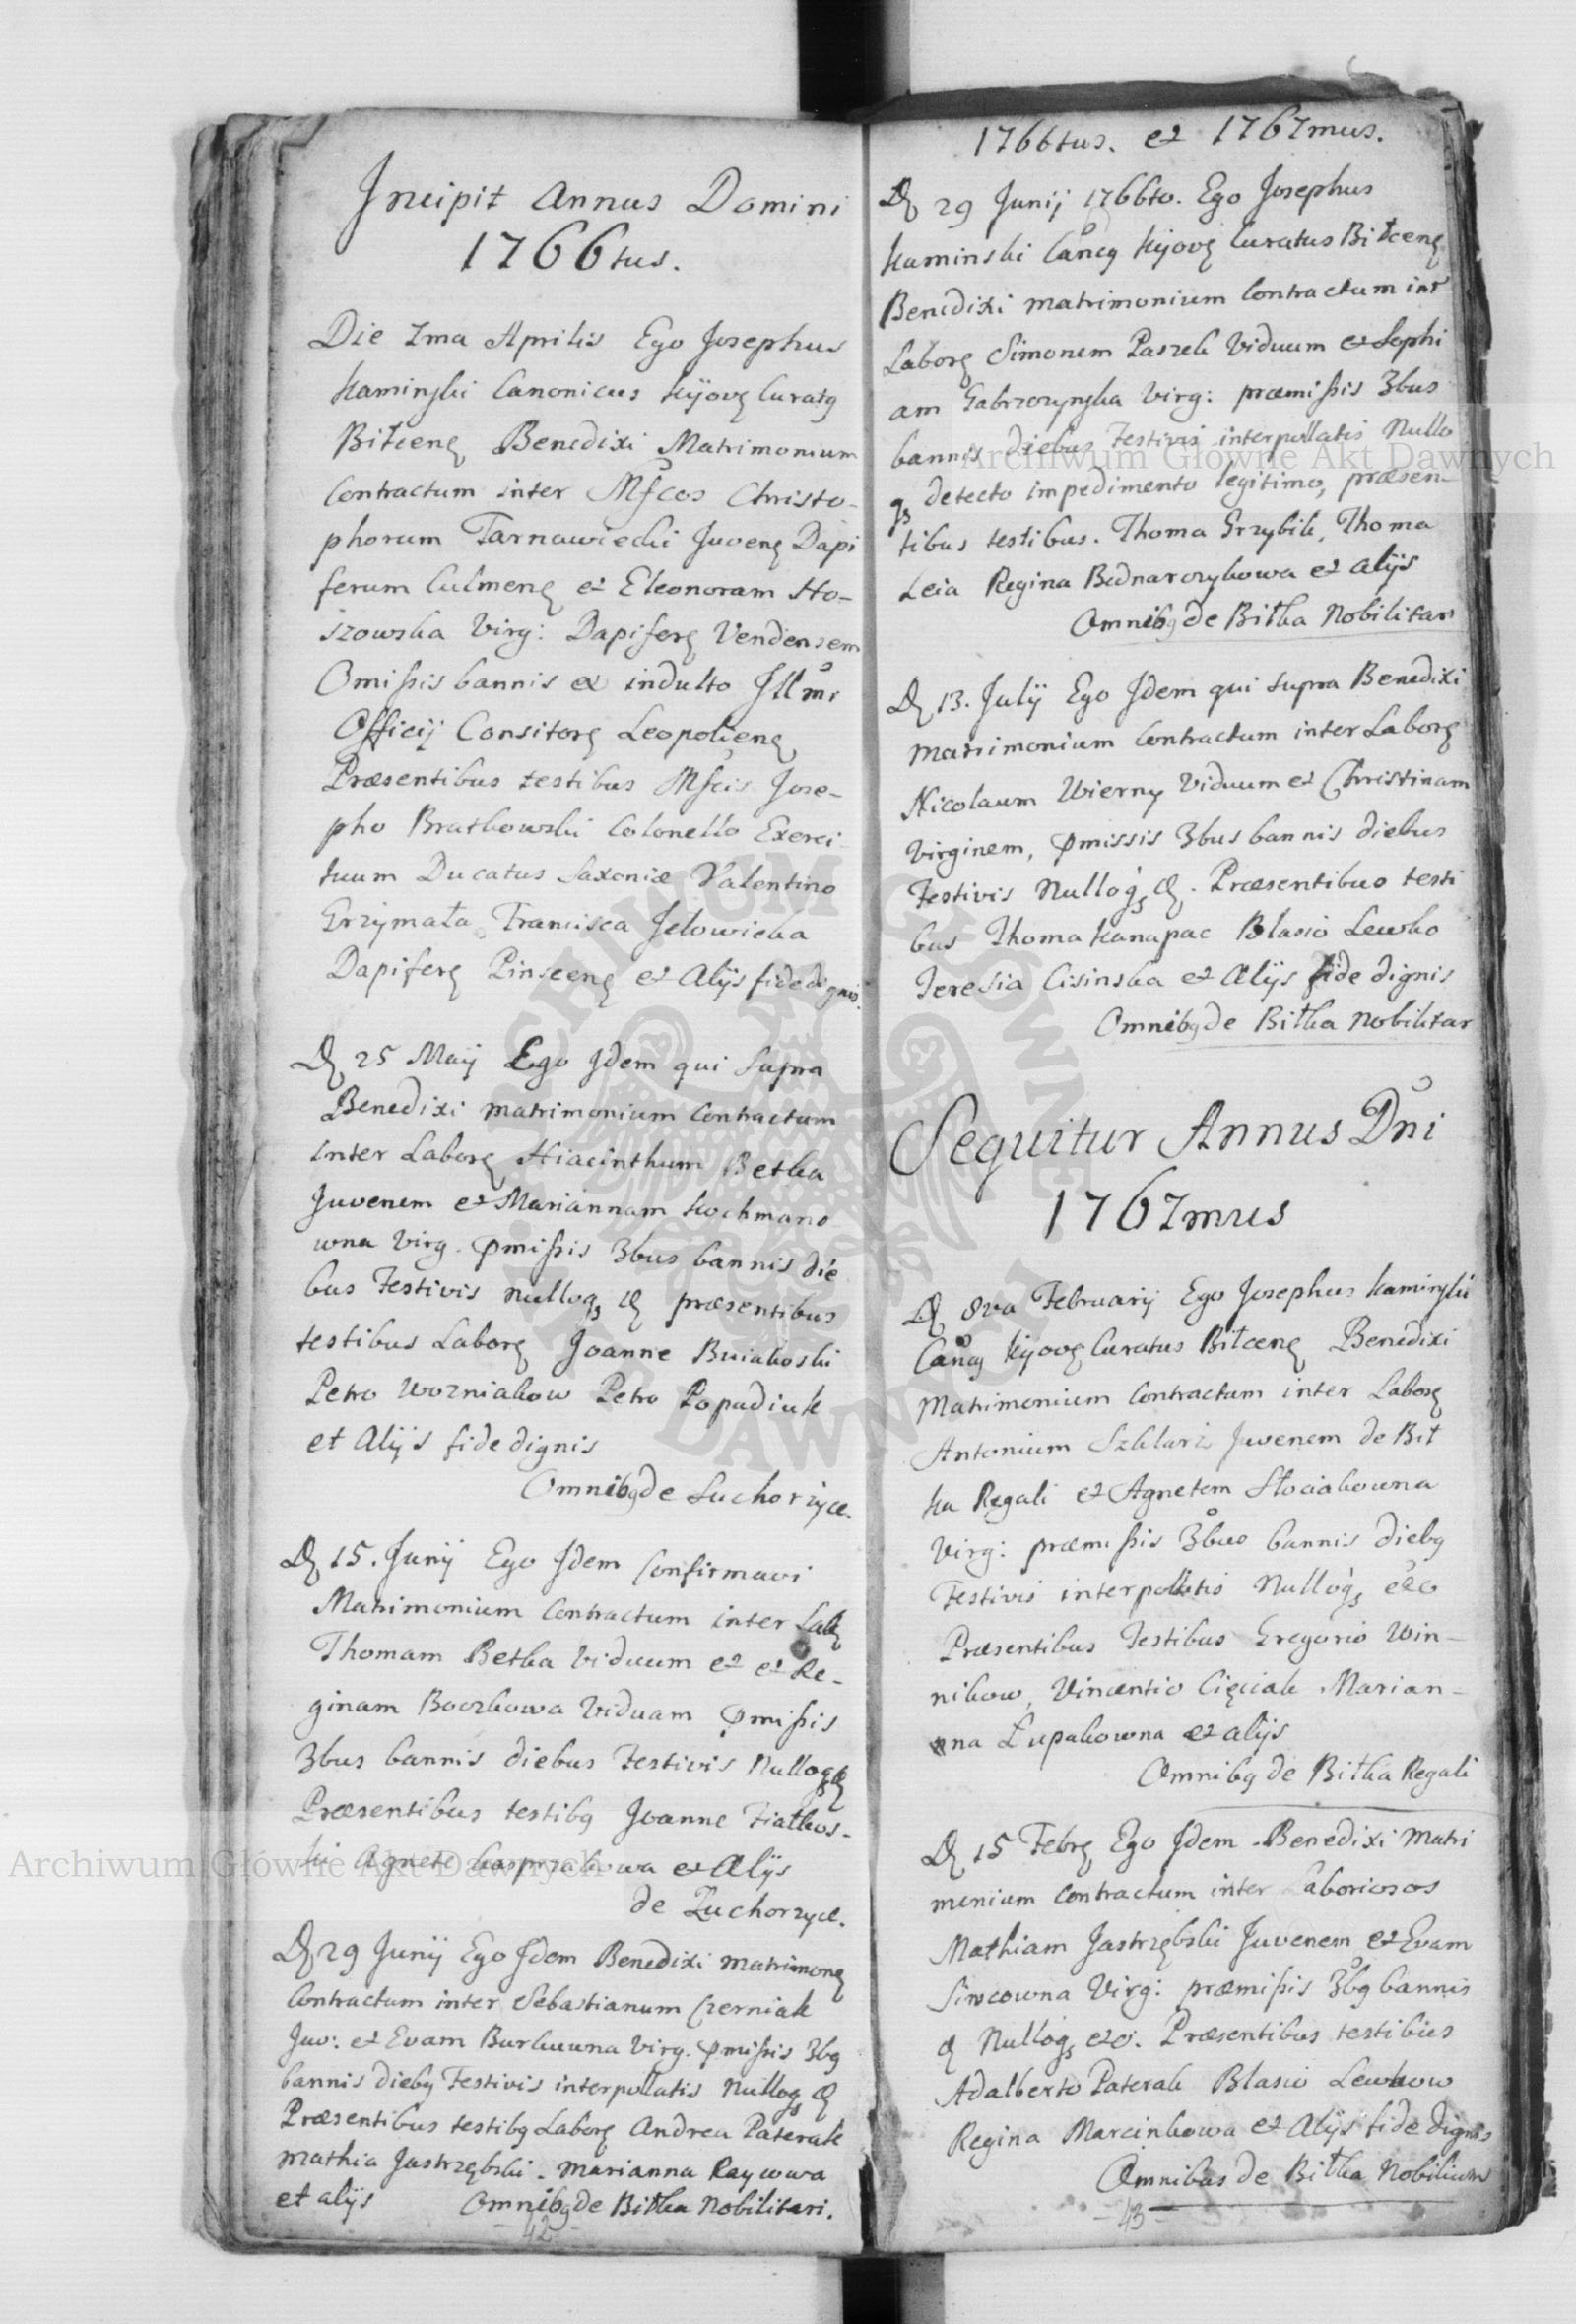 Incipit Annus Domini
1766tus.
Die 7ma Aprilis Ego Josephus
Kaminski Canonicus Kijovę Curatg
Biłcenę Benedixi Matrimonium
Contractum inter Mfcos Christo-
phorum Tarnawiecki Juvenę Dapi
ferum Culmenę et Eleonoram Ho-
szowska Virg: Dapiferę Vendensem
Omissis bannis ex indulto Illmi
Officij Consitorę Leopolienę
Præsentibus testibus Mfcis Jose-
pho Bratkowski Colonello Exerci
tuum Ducatus Saxoniæ Valentino
Grzymała Francisca Jełowicka
Dapiferę Pinscenę et Alijs fide dignis.
Dę 25 Maij Ego Idem qui Supra
Benedixi matrimonium Contractum
inter Laborę Hiacinthum Betka
Juvenem et Mariannam Kochmano
wna Virg. pmissis 3bus bannis die
bus Festivis nulloqз & præsentibus
testibus Laborę Joanne Buiakoski
Petro Wozniakow Petro Popadiuk
et Alijs fide dignis
Omnibg de Suchorzyce.
Dę 15. Junij Ego Idem Confirmavi
Matrimonium Contractum inter Labę
Thomam Betka Viduum et et Re-
ginam Boczkowa Viduam pmissis
3bus bannis diebus Festivis Nulloqз &
Præsentibus testibg Joanne Fiałkos-
ki Agnete Kasprzakowa et Alijs
de Zuchorzyce.
Dę 29 Junij Ego Idem Benedixi matrimonę
Contractum inter Sebastianum Czerniak
Juv: et Evam Burkuwna Virg. pmissis 3bg
bannis diebg Festivis interpollatis Nulloqз &
Præsentibus testibg Laborę Andrea Paterak
Mathia Jastrzębski. Marianna Raywwa
et alijs Omnibg de Biłka Nobilitari.
- 42 -
1766tus. et 1767mus.
Dę 29 Junij 1766to. Ego Josephus
Kaminski Cancg Kijovę Curatus Biłcenę
Benedixi matrimonium Contractum intr
Laborę Simonem Paszek Viduum et Sophi
am Gabrzozynska Virg: præmissis 3bus
bannis diebus Festivis interpollatis Nullo
qз detecto impedimento legitimo, præsen-
tibus testibus. Thoma Grzybik, Thoma
Leia Regina Bednarczykowa et alijs
Omnibg de Biłka Nobilitari
Dę 13. Julij Ego Idem qui supra Benedixi
Matrimonium Contractum inter Laborę
Nicolaum Wierny Viduum et Christinam
Virginem, pmissis 3bus bannis diebus
Festivis Nulloqз &. Præsentibus testi
bus Thoma Kanapac Blasio Lewko
Teresia Cisinska et Alijs fide dignis
Omnibg de Biłka Nobilitar
Sequitur Annus Dni
1767mus
Dę 8va Februarij Ego Josephus Kaminski
Cancg Kijovę Curatus Biłcenę Benedixi
Matrimonium Contractum inter Laborę
Antonium Szklarz Juvenem de Bił
ka Regali et Agnetem Słociakowna
Virg: præmissis 3bus bannis diebg
Festivis interpollatis Nulloqз etc
Præsentibus Testibus Gregorio Win-
nikow, Vincentio Cięciak Marian-
na Łupakowna et alijs
Omnibg de Biłka Regali
Dę 15 Febrę Ego Idem Benedixi Matri
monium Contractum inter Laboriosos
Mathiam Jastrzębski Juvenem et Evam
Sincowna Virg: præmissis 3bg bannis
& Nulloqз etc. Præsentibus testibus
Adalberto Paterak Blasio Lewkow
Regina Marcinkowa et Alijs fide dignis
Omnibus de Biłka Nobilium
- 43 -
Archiwum Główne Akt Dawnych
Archiwum Główne Akt Dawnych
ARCHIWUM GŁÓWNE AKT DAWNYCH